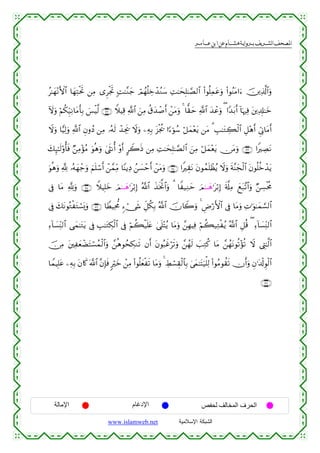 المصحف الشريف برواية هشام عن ابن عامر
وَٱلَّذِينَ ءَامَنُوا۟ وَعَمِلُوا۟ ٱلصَّٰلِحَٰتِ سَنُدْخِلُهُمْ جَنَّٰتٍ تَجْرِى مِن تَحْتِهَا ٱلْأَنْهَٰرُ
خَٰلِدِينَ فِيهَآ أَبَدًا ۖ وَعْدَ ٱللَّهِ حَقًّا ۚ وَمَنْ أَصْدَقُ مِنَ ٱللَّهِ قِيلًا لَّيْسَ بِأَمَانِيِّكُمْ وَلَآ
أَمَانِىِّ أَهْلِ ٱلْكِتَٰبِ ۗ مَن يَعْمَلْ سُوٓءًا يُجْزَ بِهِۦ وَلَا يَجِدْ لَهُۥ مِن دُونِ ٱللَّهِ وَلِيًّا وَلَا
نَصِيرًا وَمَن يَعْمَلْ مِنَ ٱلصَّٰلِحَٰتِ مِن ذَكَرٍ أَوْ أُنثَىٰ وَهُوَ مُؤْمِنٌ فَأُو۟لَٰٓئِكَ
يَدْخُلُونَ ٱلْجَنَّةَ وَلَا يُظْلَمُونَ نَقِيرًا وَمَنْ أَحْسَنُ دِينًا مِّمَّنْ أَسْلَمَ وَجْهَهُۥ لِلَّهِ وَهُوَ
مُحْسِنٌ وَٱتَّبَعَ مِلَّةَ إِبْرَٰهَٰمَ حَنِيفًا ۗ وَٱتَّخَذَ ٱللَّهُ إِبْرَٰهَٰمَ خَلِيلًا وَلِلَّهِ مَا فِى
ٱلسَّمَٰوَٰتِ وَمَا فِى ٱلْأَرْضِ ۚ وَكَانَ ٱللَّهُ بِكُلِّ شَىْءٍ مُّحِيطًا وَيَسْتَفْتُونَكَ فِى
ٱلنِّسَآءِ ۖ قُلِ ٱللَّهُ يُفْتِيكُمْ فِيهِنَّ وَمَا يُتْلَىٰ عَلَيْكُمْ فِى ٱلْكِتَٰبِ فِى يَتَٰمَى ٱلنِّسَآءِ
ٱلَّٰتِى لَا تُؤْتُونَهُنَّ مَا كُتِبَ لَهُنَّ وَتَرْغَبُونَ أَن تَنكِحُوهُنَّ وَٱلْمُسْتَضْعَفِينَ مِنَ
ٱلْوِلْدَٰنِ وَأَن تَقُومُوا۟ لِلْيَتَٰمَىٰ بِٱلْقِسْطِ ۚ وَمَا تَفْعَلُوا۟ مِنْ خَيْرٍ فَإِنَّ ٱللَّهَ كَانَ بِهِۦ عَلِيمًا
الحرف المخالف لحفص الإدغام الإمالة
الشبكة الإسلامية www.islamweb.net